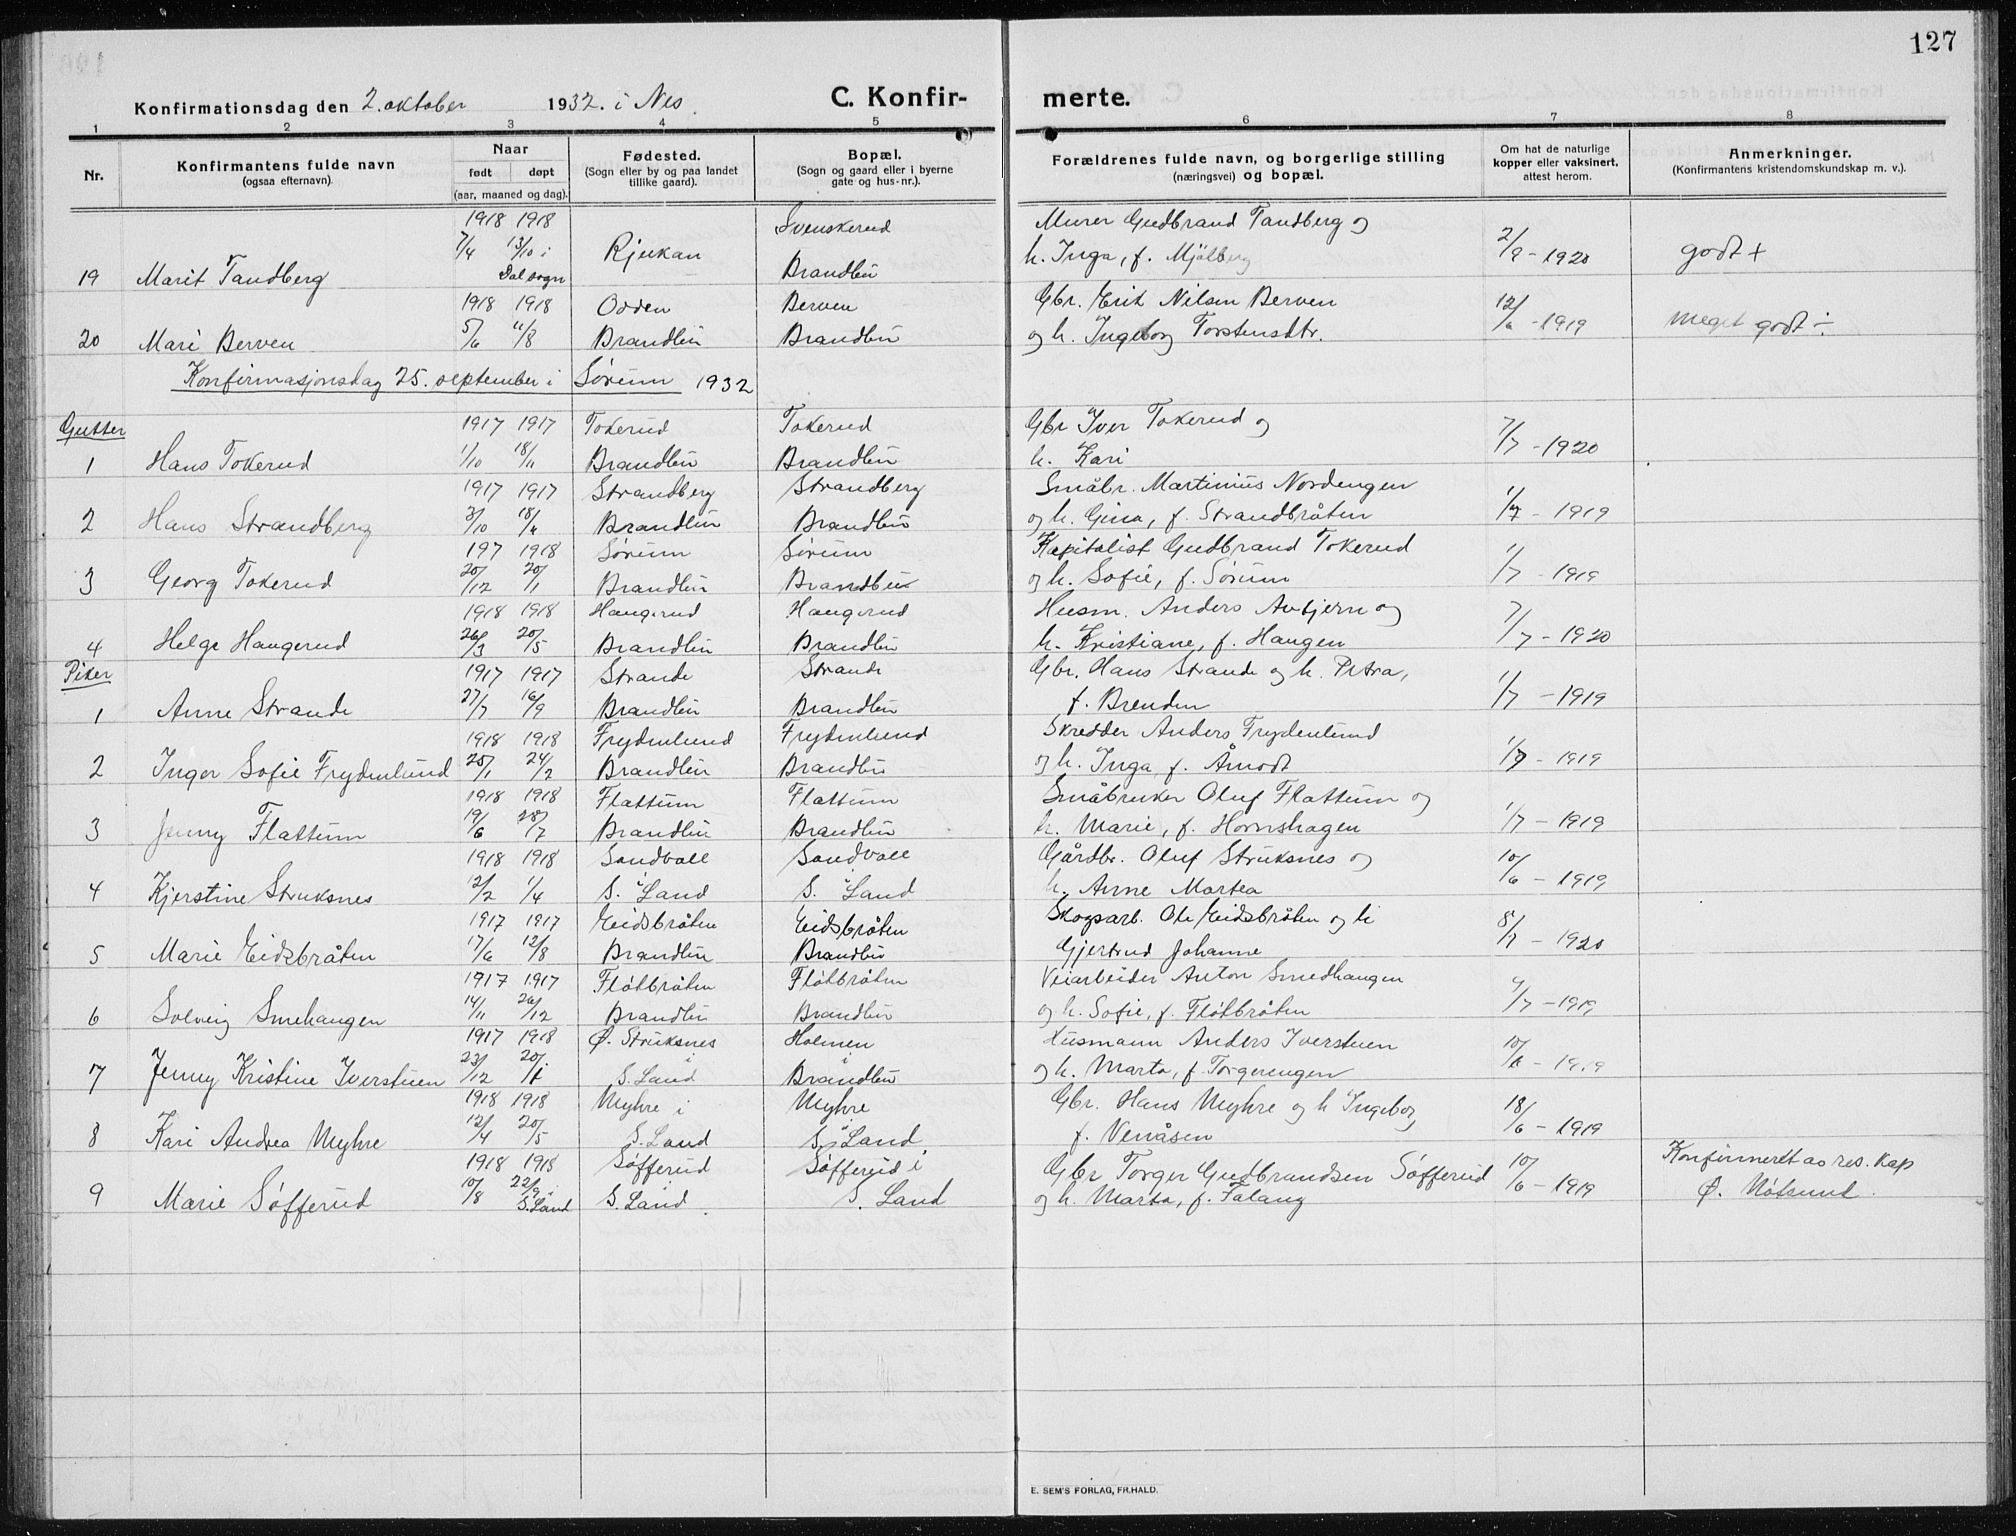 127
Konfirmationsdag den 2. oktober 1932. i Nes. C. Konfir- merte.
1 2 3 4 5 6 7 8
Nr. Konfirmantens fulde navn (ogsaa efternavn). Naar født døpt (aar, maaned og dag). Fødested. (Sogn eller by og paa landet tillike gaard). Bopæl. (Sogn og gaard eller i byerne gate og hus-nr.). Forældrenes fulde navn, og borgerlige stilling (næringsvei) og bopæl. Om hat de naturlige kopper eller vaksinert, attest herom. Anmerkninger. (Konfirmantens kristendomskundskap m. v.).
1918 1918 Svenskerud Murer Gudbrand Tandberg og
7/4 13/10 i Rjukan h. Inga, f. Mjölberg 2/9 - 1920 godt +
19 Marit Tandberg Dal sogn Brandbu
1918 1918 Odden Berven Gbr. Erik Nilsen Berven 12/6 - 1919
20 Mari Berven 5/6 11/8 Brandbu Brandbu og h. Ingeborg Torstensdtr. meget godt ÷
Konfirmasjonsdag 25. september i Sørum 1932
Gutter 1917 1917 Tokerud Tokerud Gbr Iver Tokerud og
1 Hans Tokerud 1/10 18/11 Brandbu Brandbu h. Kari 7/7 - 1920
1917 1917 Strandberg Strandberg Småbr. Martinius Nordengen
2 Hans Strandberg 3/10 18/4 Brandbu Brandbu og h. Gina, f. Strandbråten 1/7 - 1919
197 1918 Sørum Sørum Kapitalist Gudbrand Tokerud
3 Georg Tokerud 20/12 20/1 Brandbu Brandbu og h. Sofie, f. Sørum 1/7 - 1919
1918 1918 Haugerud Haugerud Husm. Anders Avtjern og
4 Helge Haugerud 26/3 20/5 Brandbu Brandbu h. Kristiane, f. Haugen 7/7 - 1920
Piker 1917 1917 Strande Strande Gbr. Hans Strande og h. Petra,
1 Anne Strande 27/7 16/9 Brandbu Brandbu f. Brenden 1/7 - 1919
1918 1918 Frydenlund Frydenlund Skredder Anders Frydenlund
2 Inger Sofie Frydenlund 20/1 24/2 Brandbu Brandbu og h. Inga, f. Åmodt 1/7 - 1919
1918 1918 Flattum Flattum Småbruker Oluf Flattum og
3 Jenny Flattum 19/6 28/7 Brandbu Brandbu h. Marie, f. Hornshagen 1/7 - 1919
1918 1918 Sandvoll Sandvoll Gårdbr. Oluf Struksnes og
4 Kjerstine Struksnes 12/2 1/4 S. Land S. Land h. Anne Martea 10/6 - 1919
1917 1917 Eidsbråten Eidsbråten Skogsarb. Ole Eidsbråten og h
5 Marie Eidsbråten 17/6 12/8 Brandbu Brandbu Gjertrud Johanne 8/7 - 1920
1917 1917 Fløtbråten Fløtbråten Veiarbeider Anton Smedhaugen
6 Solveig Smehaugen 14/11 26/12 Brandbu Brandbu og h. Sofie, f. Fløtbråten /7 - 1919
1917 1918 Ø. Struksnes Holmen Husmann Anders Iverstuen
7 Jenny Kristine Iverstuen 23/12 20/1 i S. Land i Brandbu og h. Marta, f. Torgerengen 10/6 - 1919
1918 1918 Myhre i Myhre Gbr. Hans Myhre og h Ingeborg,
8 Kari Andrea Myhre 12/4 20/5 S. Land i S. Land f. Venåsen 18/6 - 1919
1918 1918 Söfferud Söfferud i Gbr Torger Gudbrandsen Söfferud Konfirmert av res. kap
9 Marie Söfferud 10/8 22/9 i S. Land S. Land S. Land og h. Marta, f. Falang 10/6 - 1919 Ø. Nøtsund.
E. SEM'S FORLAG, FR.HALD.